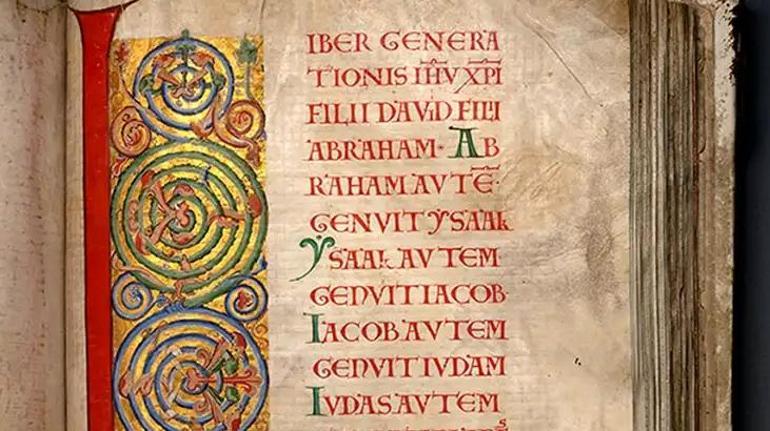 LIBER GENERA
TIONIS IH̅V XP̅I
FILII DAVID FILII
ABRAHAM· AB
RAHAM AVTE̅·
GENVIT YSAAK
YSAAK AVTEM·
GENVIT IACOB·
IACOB AVTEM
GENVIT IVDAM
IVDAS AVTEM